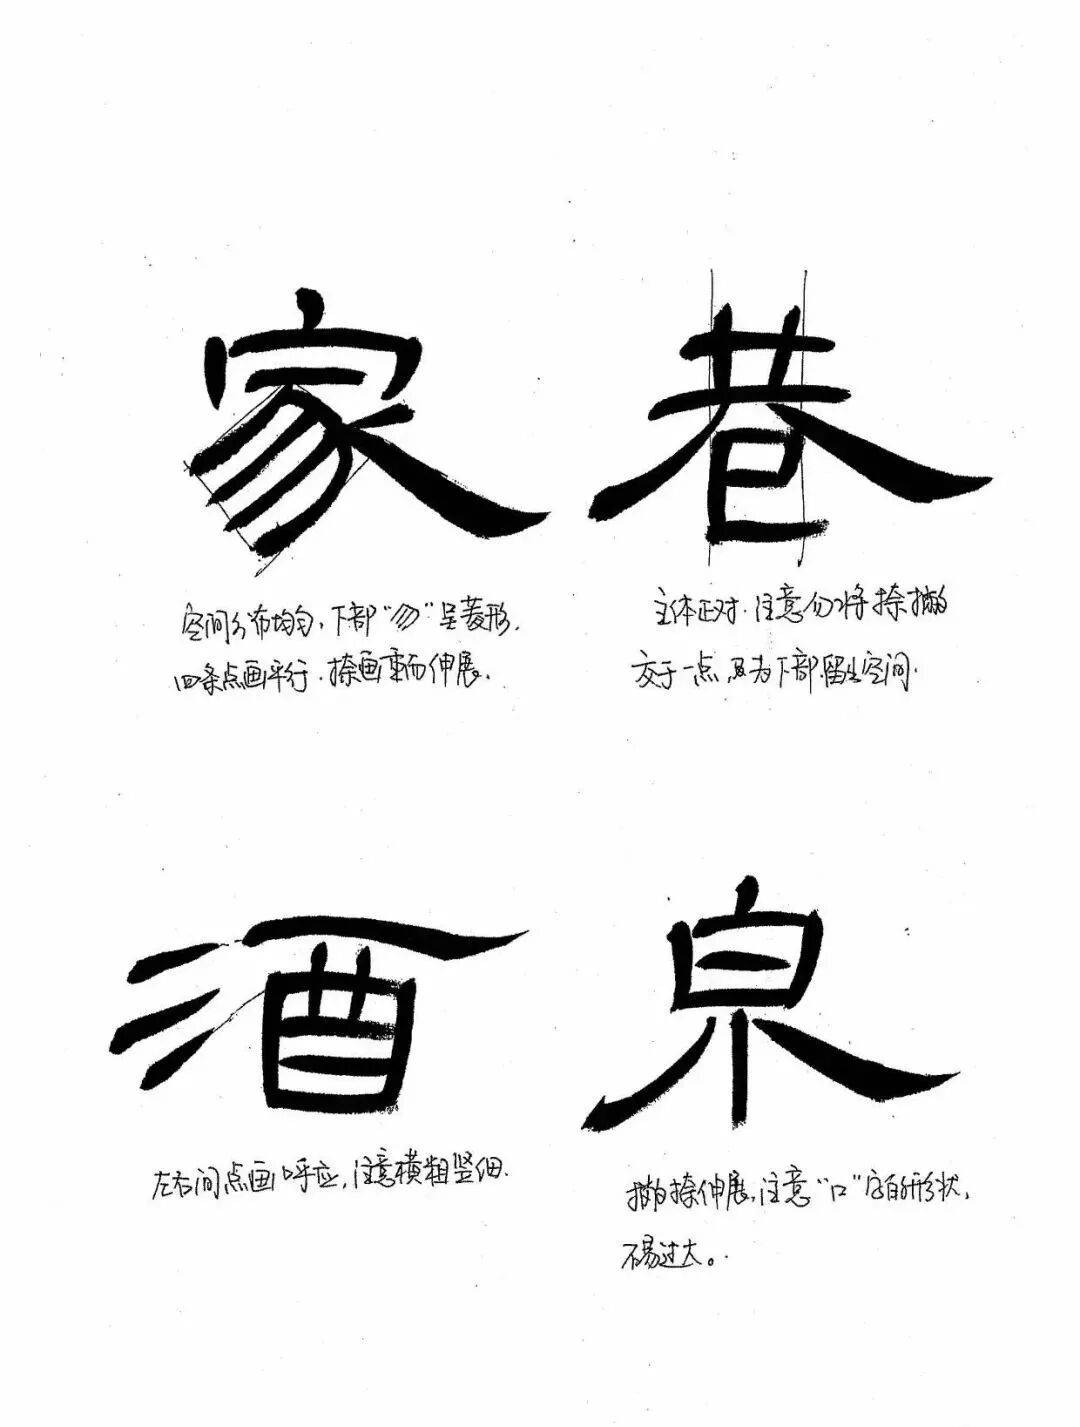 家 巷
空间分布均匀，下部“勿”呈菱形，
四条点画平行．捺画重而伸展．
主体正对．注意勿将捺撇
交于一点，且为下部留出空间．
酒 泉
左右间点画呼应，注意横粗竖细．
撇捺伸展，注意“口”字的形状，
不易过大。